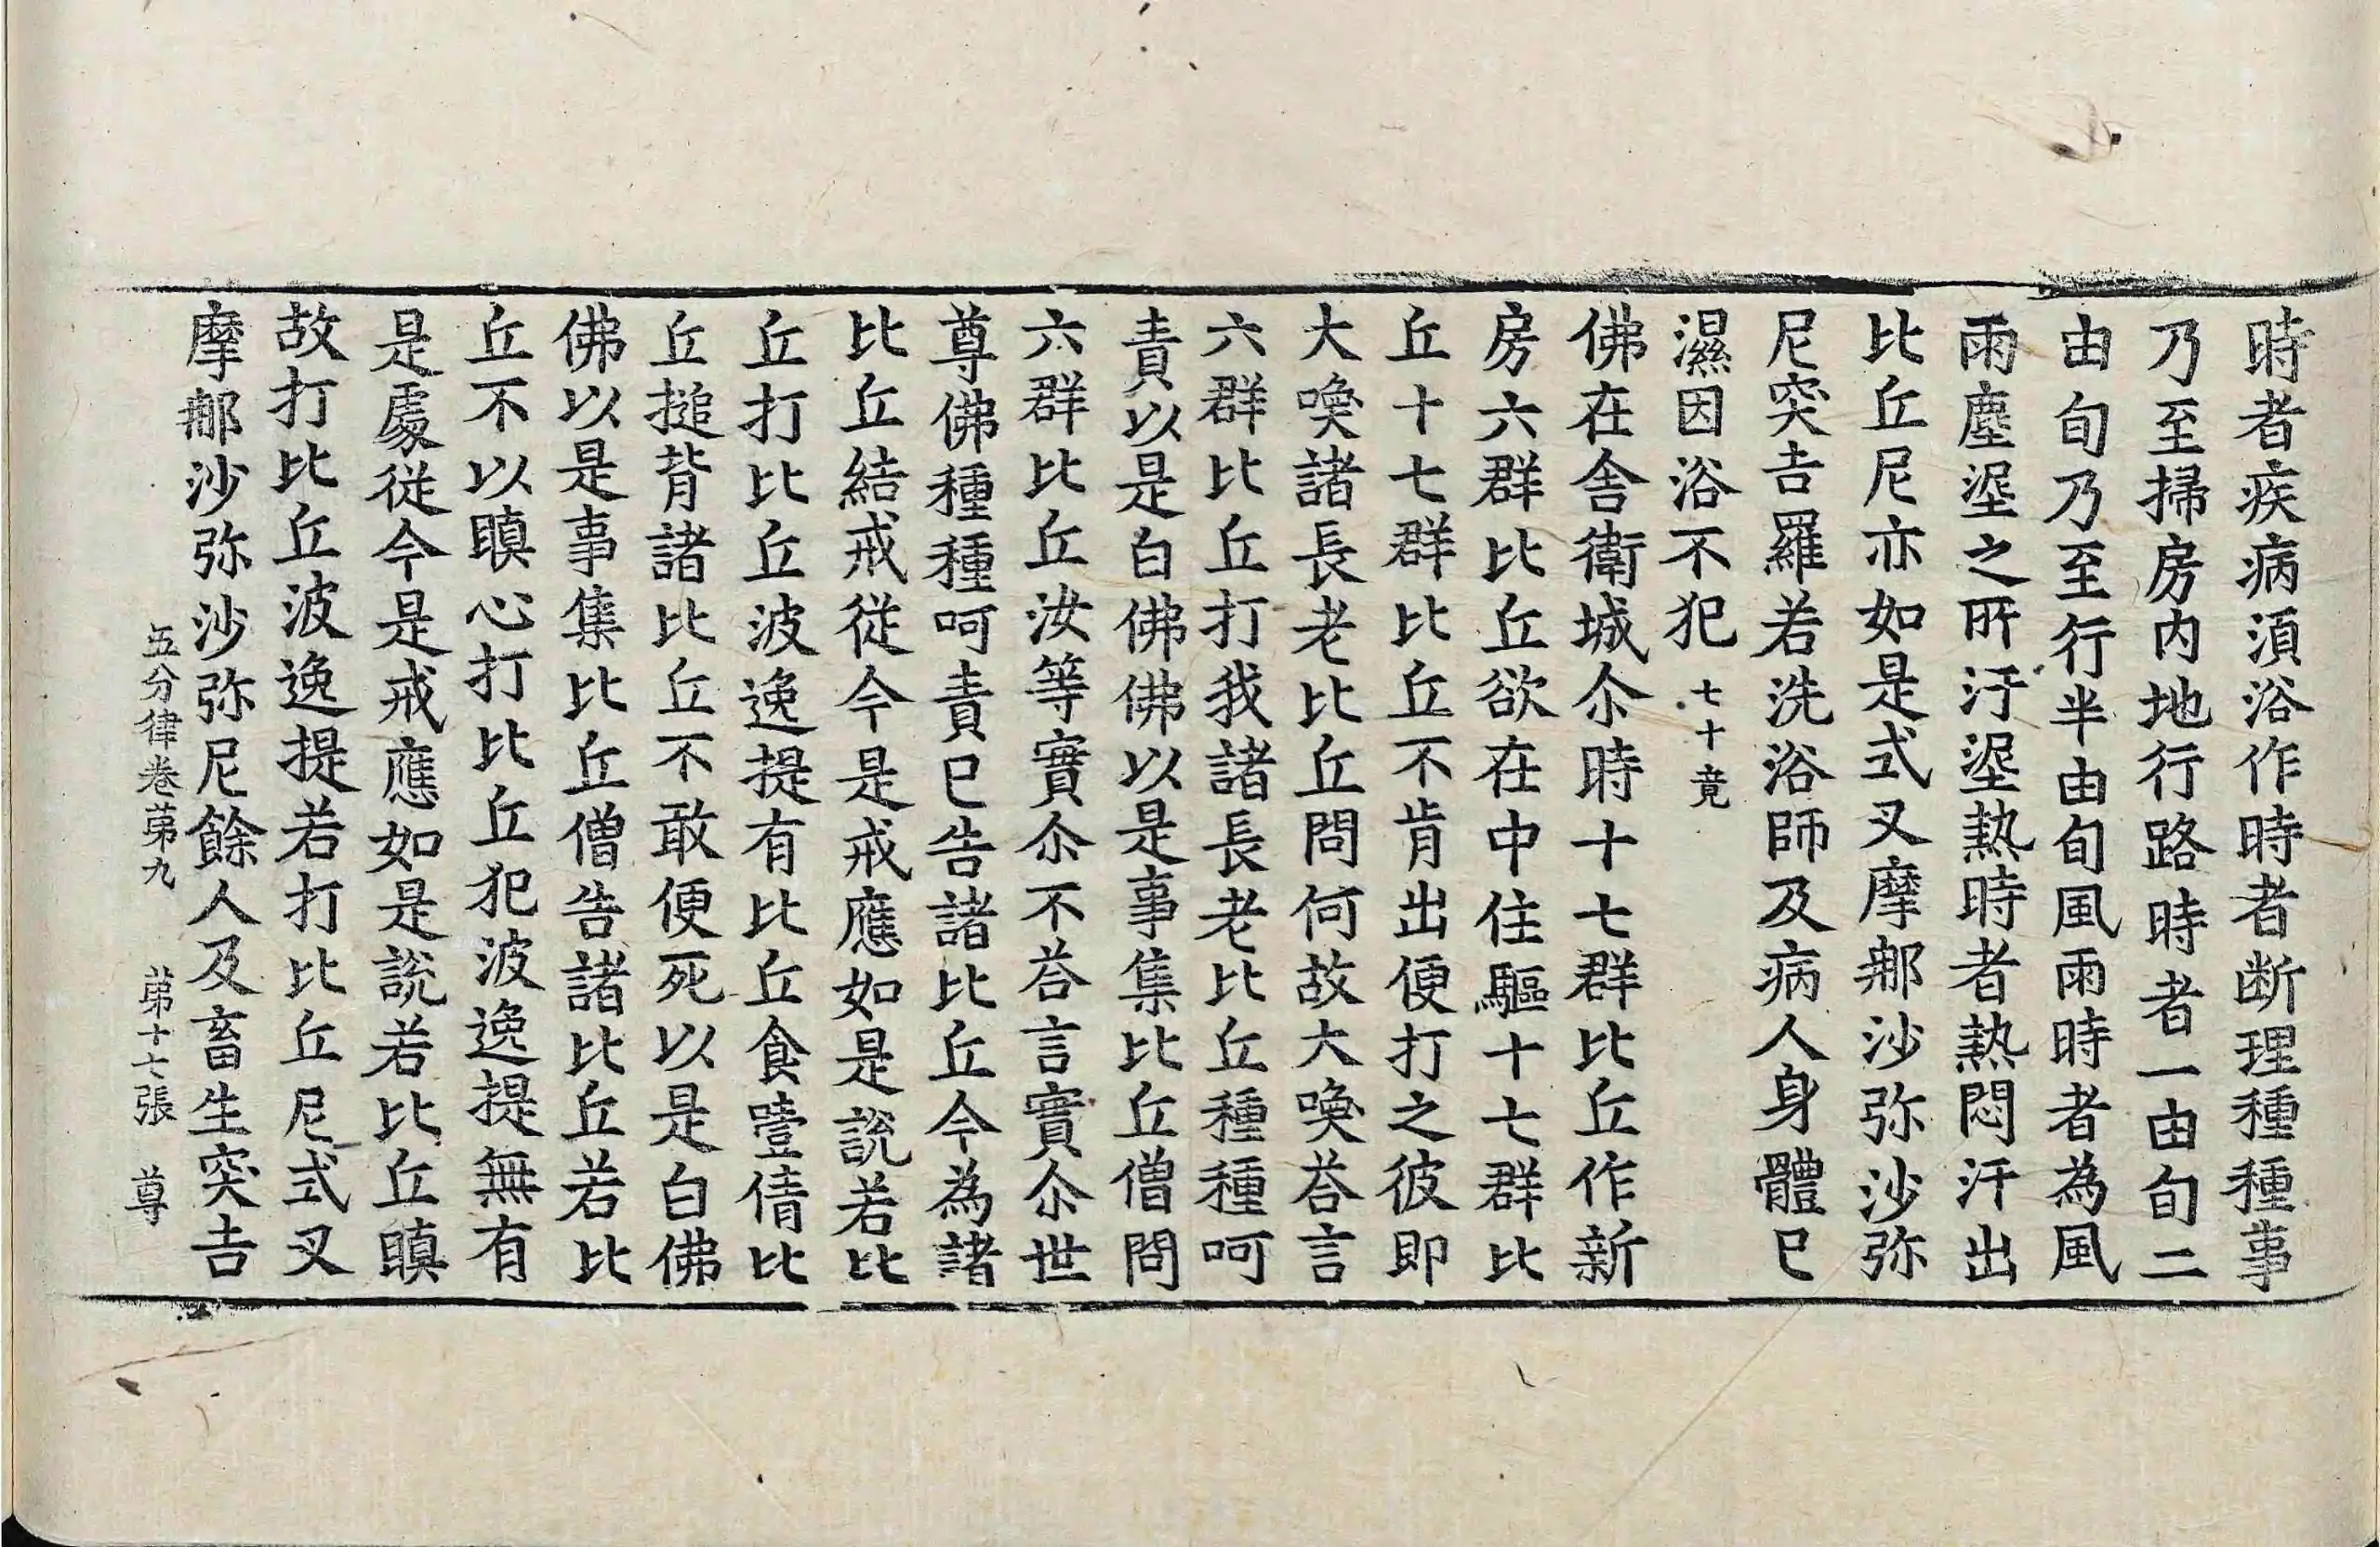 時者疾病湏浴作時者断理種種事
乃至掃房内地行路時者一由旬二
由旬乃至行半由旬風雨時者為風
雨塵坌之所汙坌熱時者熱悶汗出
比丘尼亦如是式叉摩䣭沙弥沙弥
尼突吉羅若洗浴師及病人身體已
濕因浴不犯 七十竟
佛在舍衛城尒時十七群比丘作新
房六群比丘欲在中住驅十七群比
丘十七群比丘不肯出便打之彼即
大喚諸長老比丘問何故大喚荅言
六群比丘打我諸長老比丘種種呵
責以是白佛佛以是事集比丘僧問
六群比丘汝等實尒不荅言實尒世
尊佛種種呵責已告諸比丘今為諸
比丘結戒從今是戒應如是說若比
丘打比丘波逸提有比丘食噎倩比
丘搥背諸比丘不敢便死以是白佛
佛以是事集比丘僧告諸比丘若比
丘不以瞋心打比丘犯波逸提無有
是處從今是戒應如是說若比丘瞋
故打比丘波逸提若打比丘尼式叉
摩䣭沙弥沙弥尼餘人及畜生突吉
五分律卷苐九 苐十七張 尊